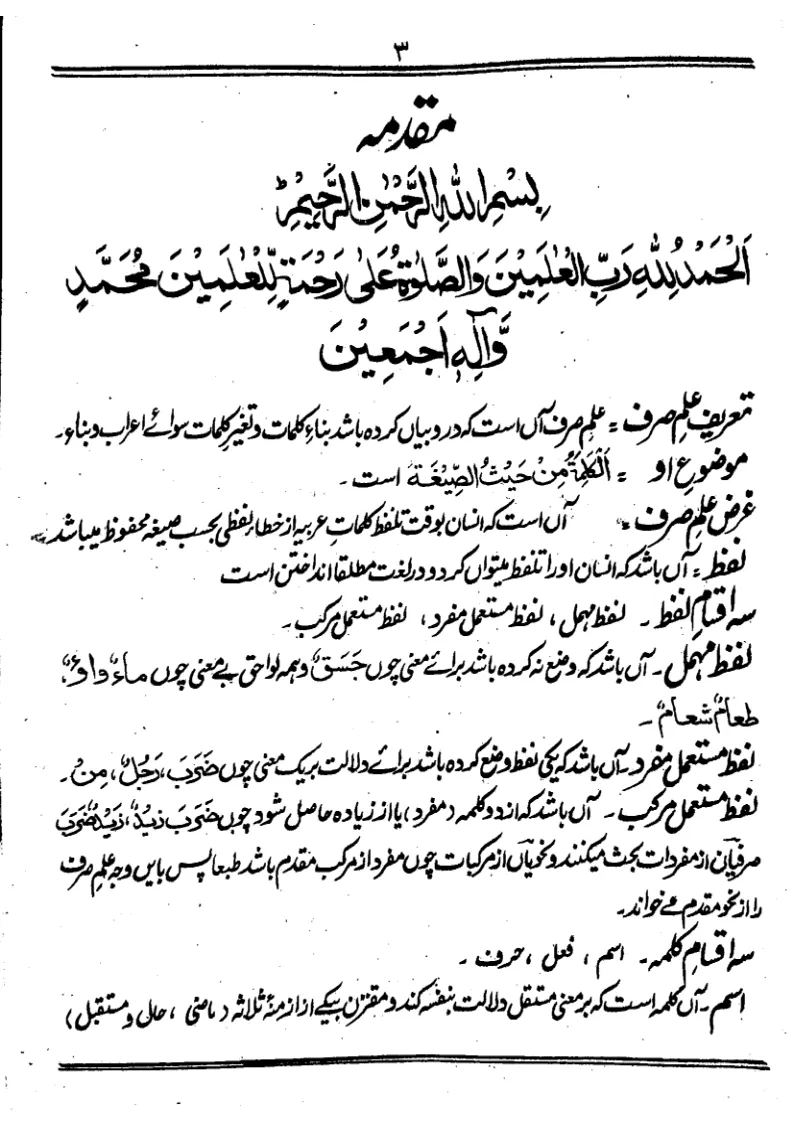 ۳
مقدمہ
بِسْمِ اللهِ الرَّحْمٰنِ الرَّحِيْمِ
اَلْحَمْدُ لِلّٰهِ رَبِّ الْعٰلَمِيْنَ وَالصَّلٰوةُ عَلٰى رَحْمَةٍ لِّلْعٰلَمِيْنَ مُحَمَّدٍ
وَّاٰلِهٖ اَجْمَعِيْنَ
تعریف علمِ صرف = علم صرف آں است کہ درو بیاں کردہ باشد بناءِ کلمات و تغیر کلمات سوائے اعراب و بناء۔
موضوع او = اَلْكَلِمَةُ مِنْ حَيْثُ الصِّيْغَة است۔
غرض علم صرف = آں است کہ انسان بوقت تلفظ کلمات عربیہ از خطاء لفظی بحسب صیغہ محفوظ میباشد۔
لفظ = آں باشد کہ انسان اورا تلفظ میتواں کرد و در لغت مطلقا انداختن است
سہ اقسام لفظ ۔ لفظ مہمل، لفظ مستعمل مفرد، لفظ مستعمل مرکب۔
لفظ مہمل ۔ آں باشد کہ وضع نہ کردہ باشد برائے معنی چوں جَسَقٌ و ہمہ لواحق بے معنی چوں ماءٌ واءٌ،
طعامٌ شعامٌ ۔
لفظ مستعمل مفرد ۔ آں باشد کہ یکی لفظ وضع کردہ باشد برائے دلالت بریک معنی چوں ضَرَبَ، رَجُلٌ، مِنْ ۔
لفظ مستعمل مرکب ۔ آں باشد کہ از دو کلمہ (مفرد) یا از زیادہ حاصل شود چوں ضَرَبَ زَيْدٌ، زَيْدٌ ضَرَبَ
صرفیاں از مفردات بحث میکنند و نحویاں از مرکبات چوں مفرد از مرکب مقدم باشد طبعا پس بایں وجہ علم صرف
را از نحو مقدم مے خواند۔
سہ اقسام کلمہ ۔ اسم ، فعل ، حرف ۔
اسم ۔ آں کلمہ است کہ بر معنی مستقل دلالت بنفسہ کند و مقترن بیکے از ازمنۂ ثلاثہ (ماضی ، حال و مستقبل)